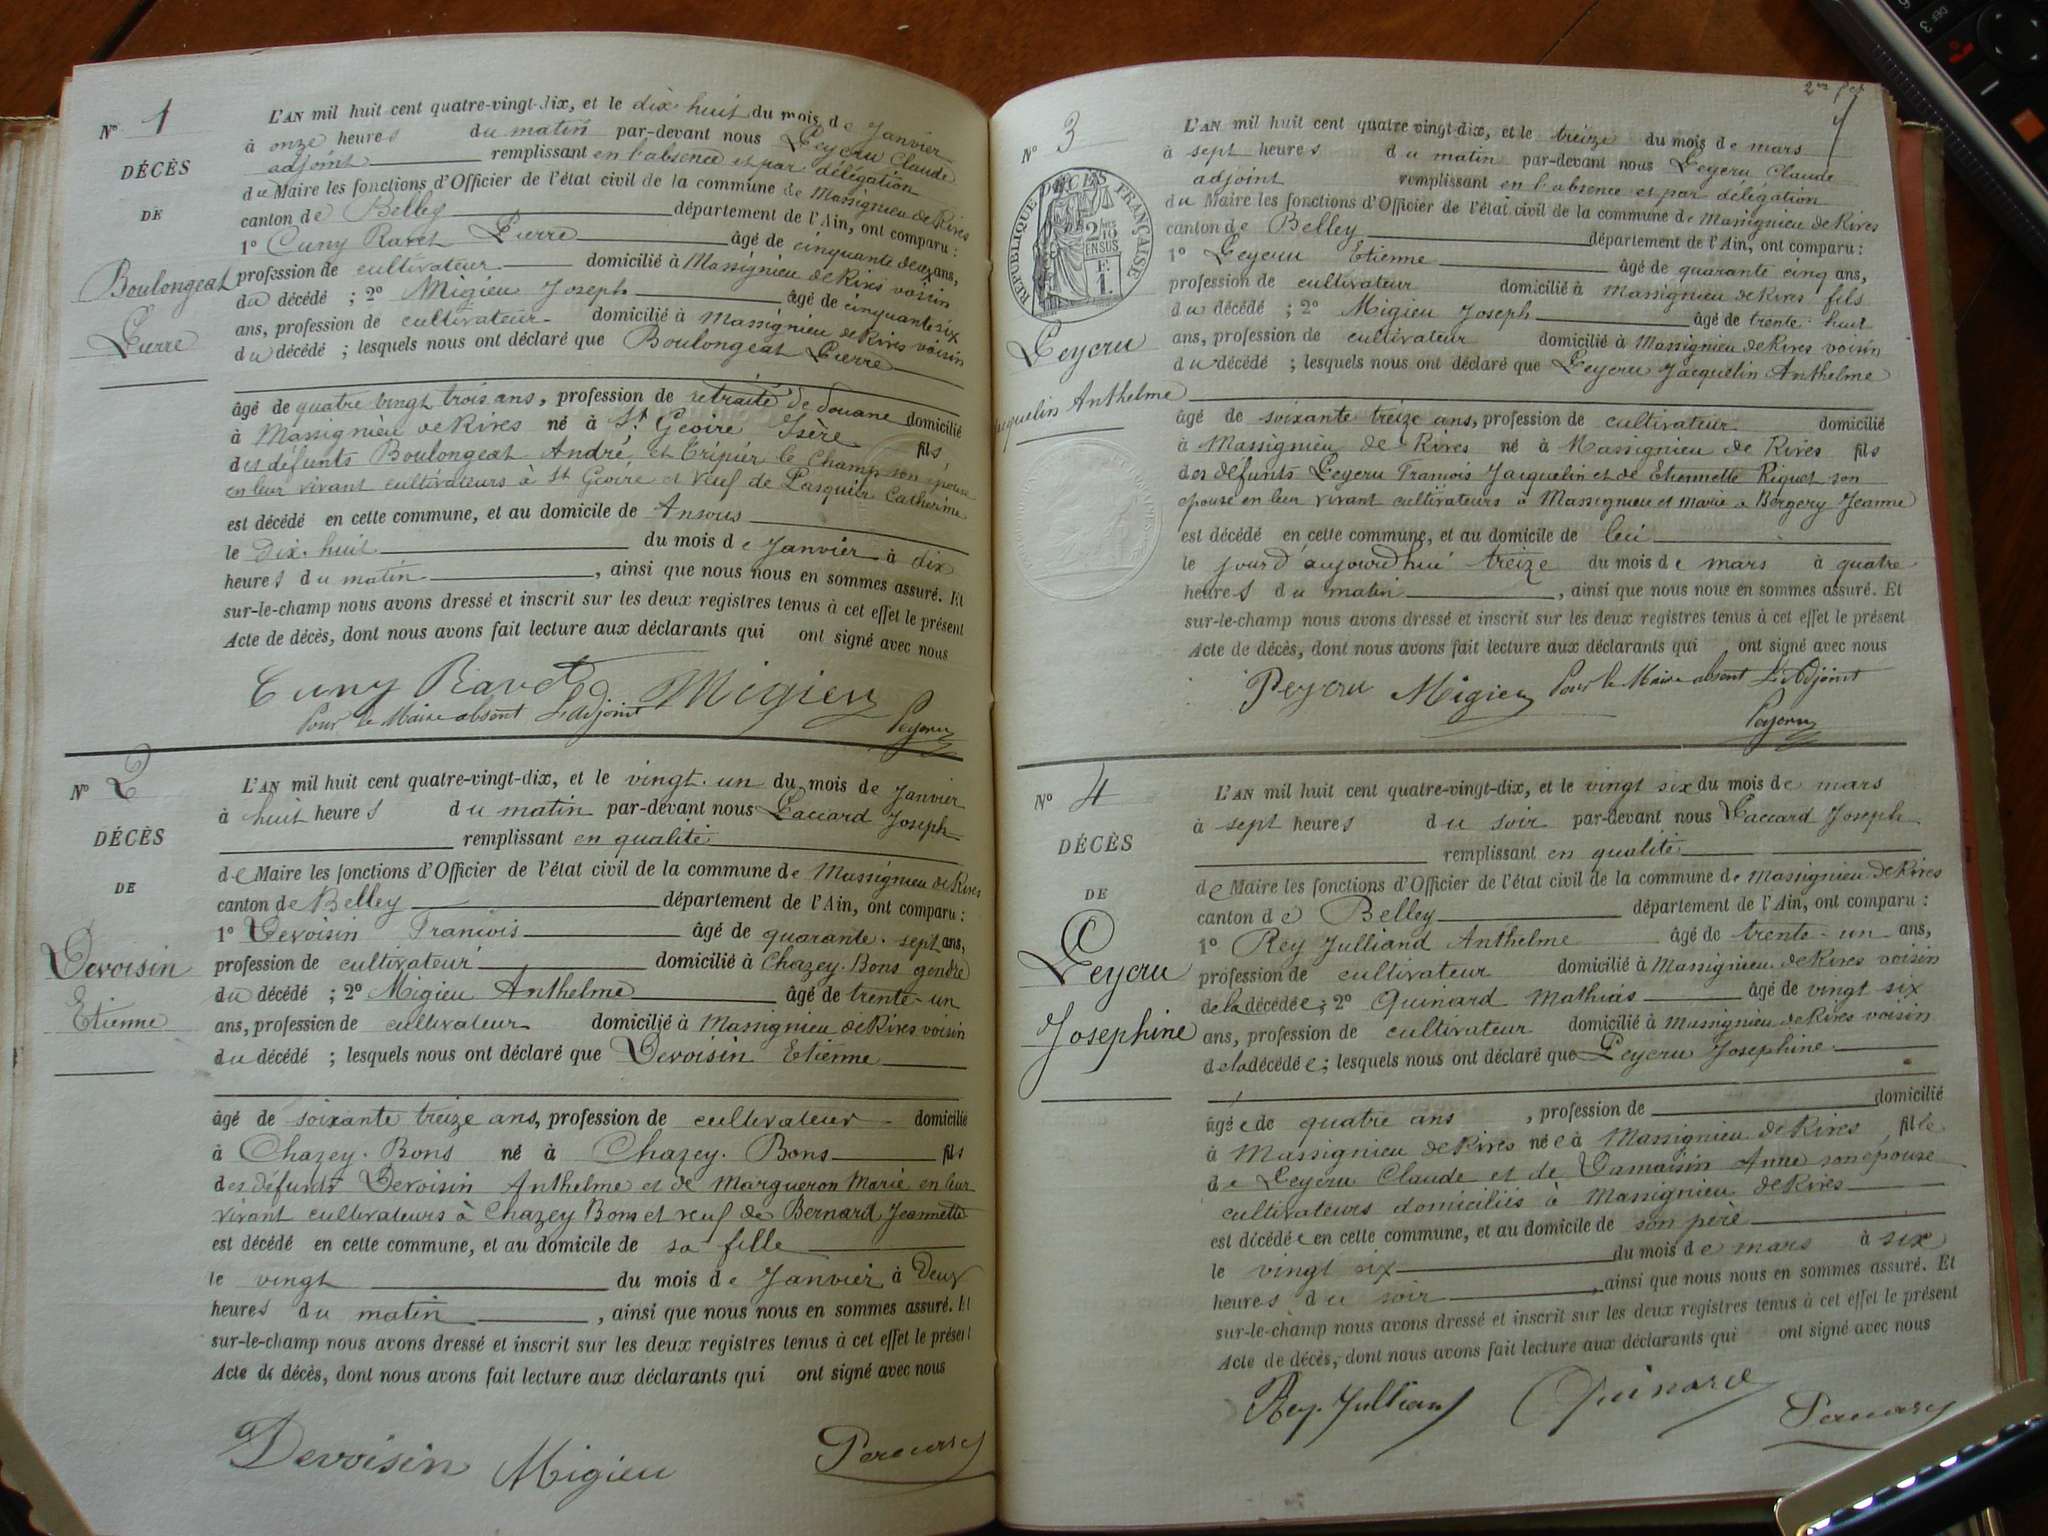 N° 1
DÉCÈS
DE
Boulongeat
Pierre
L'AN mil huit cent quatre-vingt-dix, et le dix huit du mois de Janvier
à onze heures du matin par-devant nous Peycru Claude
adjoint remplissant en l'absence et par délégation
du Maire les fonctions d'Officier de l'état civil de la commune de Massignieu de Rives
canton de Belley département de l'Ain, ont comparu :
1° Cuny Ravet Pierre âgé de cinquante deux ans,
profession de cultivateur domicilié à Massignieu de Rives voisin
du décédé ; 2° Migieu Joseph âgé de cinquante six
ans, profession de cultivateur domicilié à Massignieu de Rives voisin
du décédé ; lesquels nous ont déclaré que Boulongeat Pierre
âgé de quatre vingt trois ans, profession de retraité de douane domicilié
à Massignieu de Rives né à St Geoire Isère fils
des défunts Boulongeat André et Tripier le Champ son épouse
en leur vivant cultivateurs à St Geoire et veuf de Pasquier Catherine
est décédé en cette commune, et au domicile de Ansous
le Dix. huit du mois de Janvier à dix
heures du matin, ainsi que nous nous en sommes assuré. Et
sur-le-champ nous avons dressé et inscrit sur les deux registres tenus à cet effet le présent
Acte de décès, dont nous avons fait lecture aux déclarants qui ont signé avec nous
Cuny Ravet Migieu
Pour le Maire absent L'Adjoint
Peycru
N° 2
DÉCÈS
DE
Devoisin
Etienne
L'AN mil huit cent quatre-vingt-dix, et le vingt. un du mois de Janvier
à huit heures du matin par-devant nous Paccard Joseph
remplissant en qualité
de Maire les fonctions d'Officier de l'état civil de la commune de Massignieu de Rives
canton de Belley département de l'Ain, ont comparu :
1° Devoisin Francois âgé de quarante. sept ans,
profession de cultivateur domicilié à Chazey. Bons gendre
du décédé ; 2° Migieu Anthelme âgé de trente-un
ans, profession de cultivateur domicilié à Massignieu de Rives voisin
du décédé ; lesquels nous ont déclaré que Devoisin Etienne
âgé de soixante treize ans, profession de cultivateur domicilié
à Chazey. Bons né à Chazey. Bons fils
des défunts Devoisin Anthelme et de Margueron Marie en leur
vivant cultivateurs à Chazey Bons et veuf de Bernard Jeannette
est décédé en cette commune, et au domicile de sa fille
le vingt du mois de Janvier à Deux
heures du matin, ainsi que nous nous en sommes assuré. Et
sur-le-champ nous avons dressé et inscrit sur les deux registres tenus à cet effet le présent
Acte de décès, dont nous avons fait lecture aux déclarants qui ont signé avec nous
Devoisin Migieu
N° 3
RÉPUBLIQUE FRANÇAISE
2/10 EN SUS
F. 1.
Peycru
Jacquelin Anthelme
L'AN mil huit cent quatre-vingt-dix, et le treize du mois de mars
à sept heures du matin par-devant nous Peycru Claude
adjoint remplissant en l'absence et par délégation
du Maire les fonctions d'Officier de l'état civil de la commune de Massignieu de Rives
canton de Belley département de l'Ain, ont comparu :
1° Peycru Etienne âgé de quarante cinq ans,
profession de cultivateur domicilié à Massignieu de Rives fils
du décédé ; 2° Migieu Joseph âgé de trente-huit
ans, profession de cultivateur domicilié à Massignieu de Rives voisin
du décédé ; lesquels nous ont déclaré que Peycru Jacquelin Anthelme
âgé de soixante treize ans, profession de cultivateur domicilié
à Massignieu de Rives né à Massignieu de Rives fils
des défunts Peycru Francois Jacquelin et de Etiennette Riguet son
epouse en leur vivant cultivateurs à Massignieu et marié à Bergery Jeanne
est décédé en cette commune, et au domicile de lui
le jour d'aujourd'hui treize du mois de mars à quatre
heures du matin, ainsi que nous nous en sommes assuré. Et
sur-le-champ nous avons dressé et inscrit sur les deux registres tenus à cet effet le présent
Acte de décès, dont nous avons fait lecture aux déclarants qui ont signé avec nous
Peycru Migieu Pour le Maire absent L'Adjoint
Peycru
N° 4
DÉCÈS
DE
Peycru
Josephine
L'AN mil huit cent quatre-vingt-dix, et le vingt six du mois de mars
à sept heures du soir par-devant nous Paccard Joseph
remplissant en qualité
de Maire les fonctions d'Officier de l'état civil de la commune de Massignieu de Rives
canton de Belley département de l'Ain, ont comparu :
1° Rey Julliand Anthelme âgé de trente-un ans,
profession de cultivateur domicilié à Massignieu de Rives voisin
de la décédée ; 2° Quinard Mathias âgé de vingt six
ans, profession de cultivateur domicilié à Massignieu de Rives voisin
de la décédée ; lesquels nous ont déclaré que Peycru Josephine
âgée de quatre ans, profession de domicilié
à Massignieu de Rives née à Massignieu de Rives, fille
de Peycru Claude et de Damaisin Anne son epouse
cultivateurs domiciliés à Massignieu de Rives
est décédée en cette commune, et au domicile de son père
le vingt six du mois de mars à six
heures du soir, ainsi que nous nous en sommes assuré. Et
sur-le-champ nous avons dressé et inscrit sur les deux registres tenus à cet effet le présent
Acte de décès, dont nous avons fait lecture aux déclarants qui ont signé avec nous
Rey. Julliand Quinard